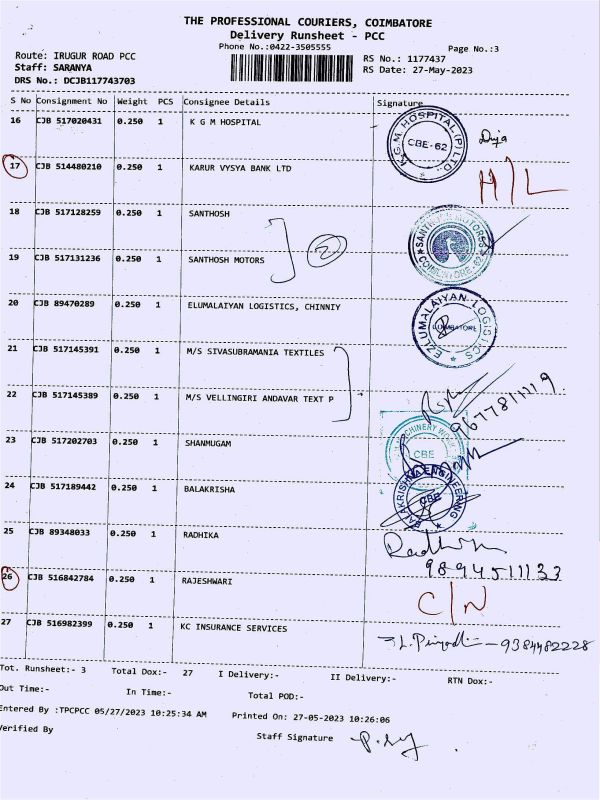 THE PROFESSIONAL COURIERS, COIMBATORE
Delivery Runsheet - PCC
Phone No.:0422-3505555
Page No.:3
Route: IRUGUR ROAD PCC
RS No.: 1177437
Staff: SARANYA
RS Date: 27-May-2023
DRS No.: DCJB117743703
S No Consignment No Weight PCS Consignee Details Signature
16 CJB 517020431 0.250 1 K G M HOSPITAL
K.G.M. HOSPITAL (P) LTD. CBE-62
17 CJB 514480210 0.250 1 KARUR VYSYA BANK LTD H/L
18 CJB 517128259 0.250 1 SANTHOSH
SANTHOSH MOTORS
2
19 CJB 517131236 0.250 1 SANTHOSH MOTORS
20 CJB 89470289 0.250 1 ELUMALAIYAN LOGISTICS, CHINNIY
EZLUMALAIYAN LOGISTICS COIMBATORE
21 CJB 517145391 0.250 1 M/S SIVASUBRAMANIA TEXTILES
22 CJB 517145389 0.250 1 M/S VELLINGIRI ANDAVAR TEXT P
23 CJB 517202703 0.250 1 SHANMUGAM
CBE
24 CJB 517189442 0.250 1 BALAKRISHA
BALAKRISHNA ENGINEERING CBE
25 CJB 89348033 0.250 1 RADHIKA
9894511133
26 CJB 516842784 0.250 1 RAJESHWARI C/N
27 CJB 516982399 0.250 1 KC INSURANCE SERVICES
9384482228
Tot. Runsheet:- 3 Total Dox:- 27 I Delivery:- II Delivery:- RTN Dox:-
Out Time:- In Time:- Total POD:-
Entered By :TPCPCC 05/27/2023 10:25:34 AM Printed On: 27-05-2023 10:26:06
Verified By
Staff Signature